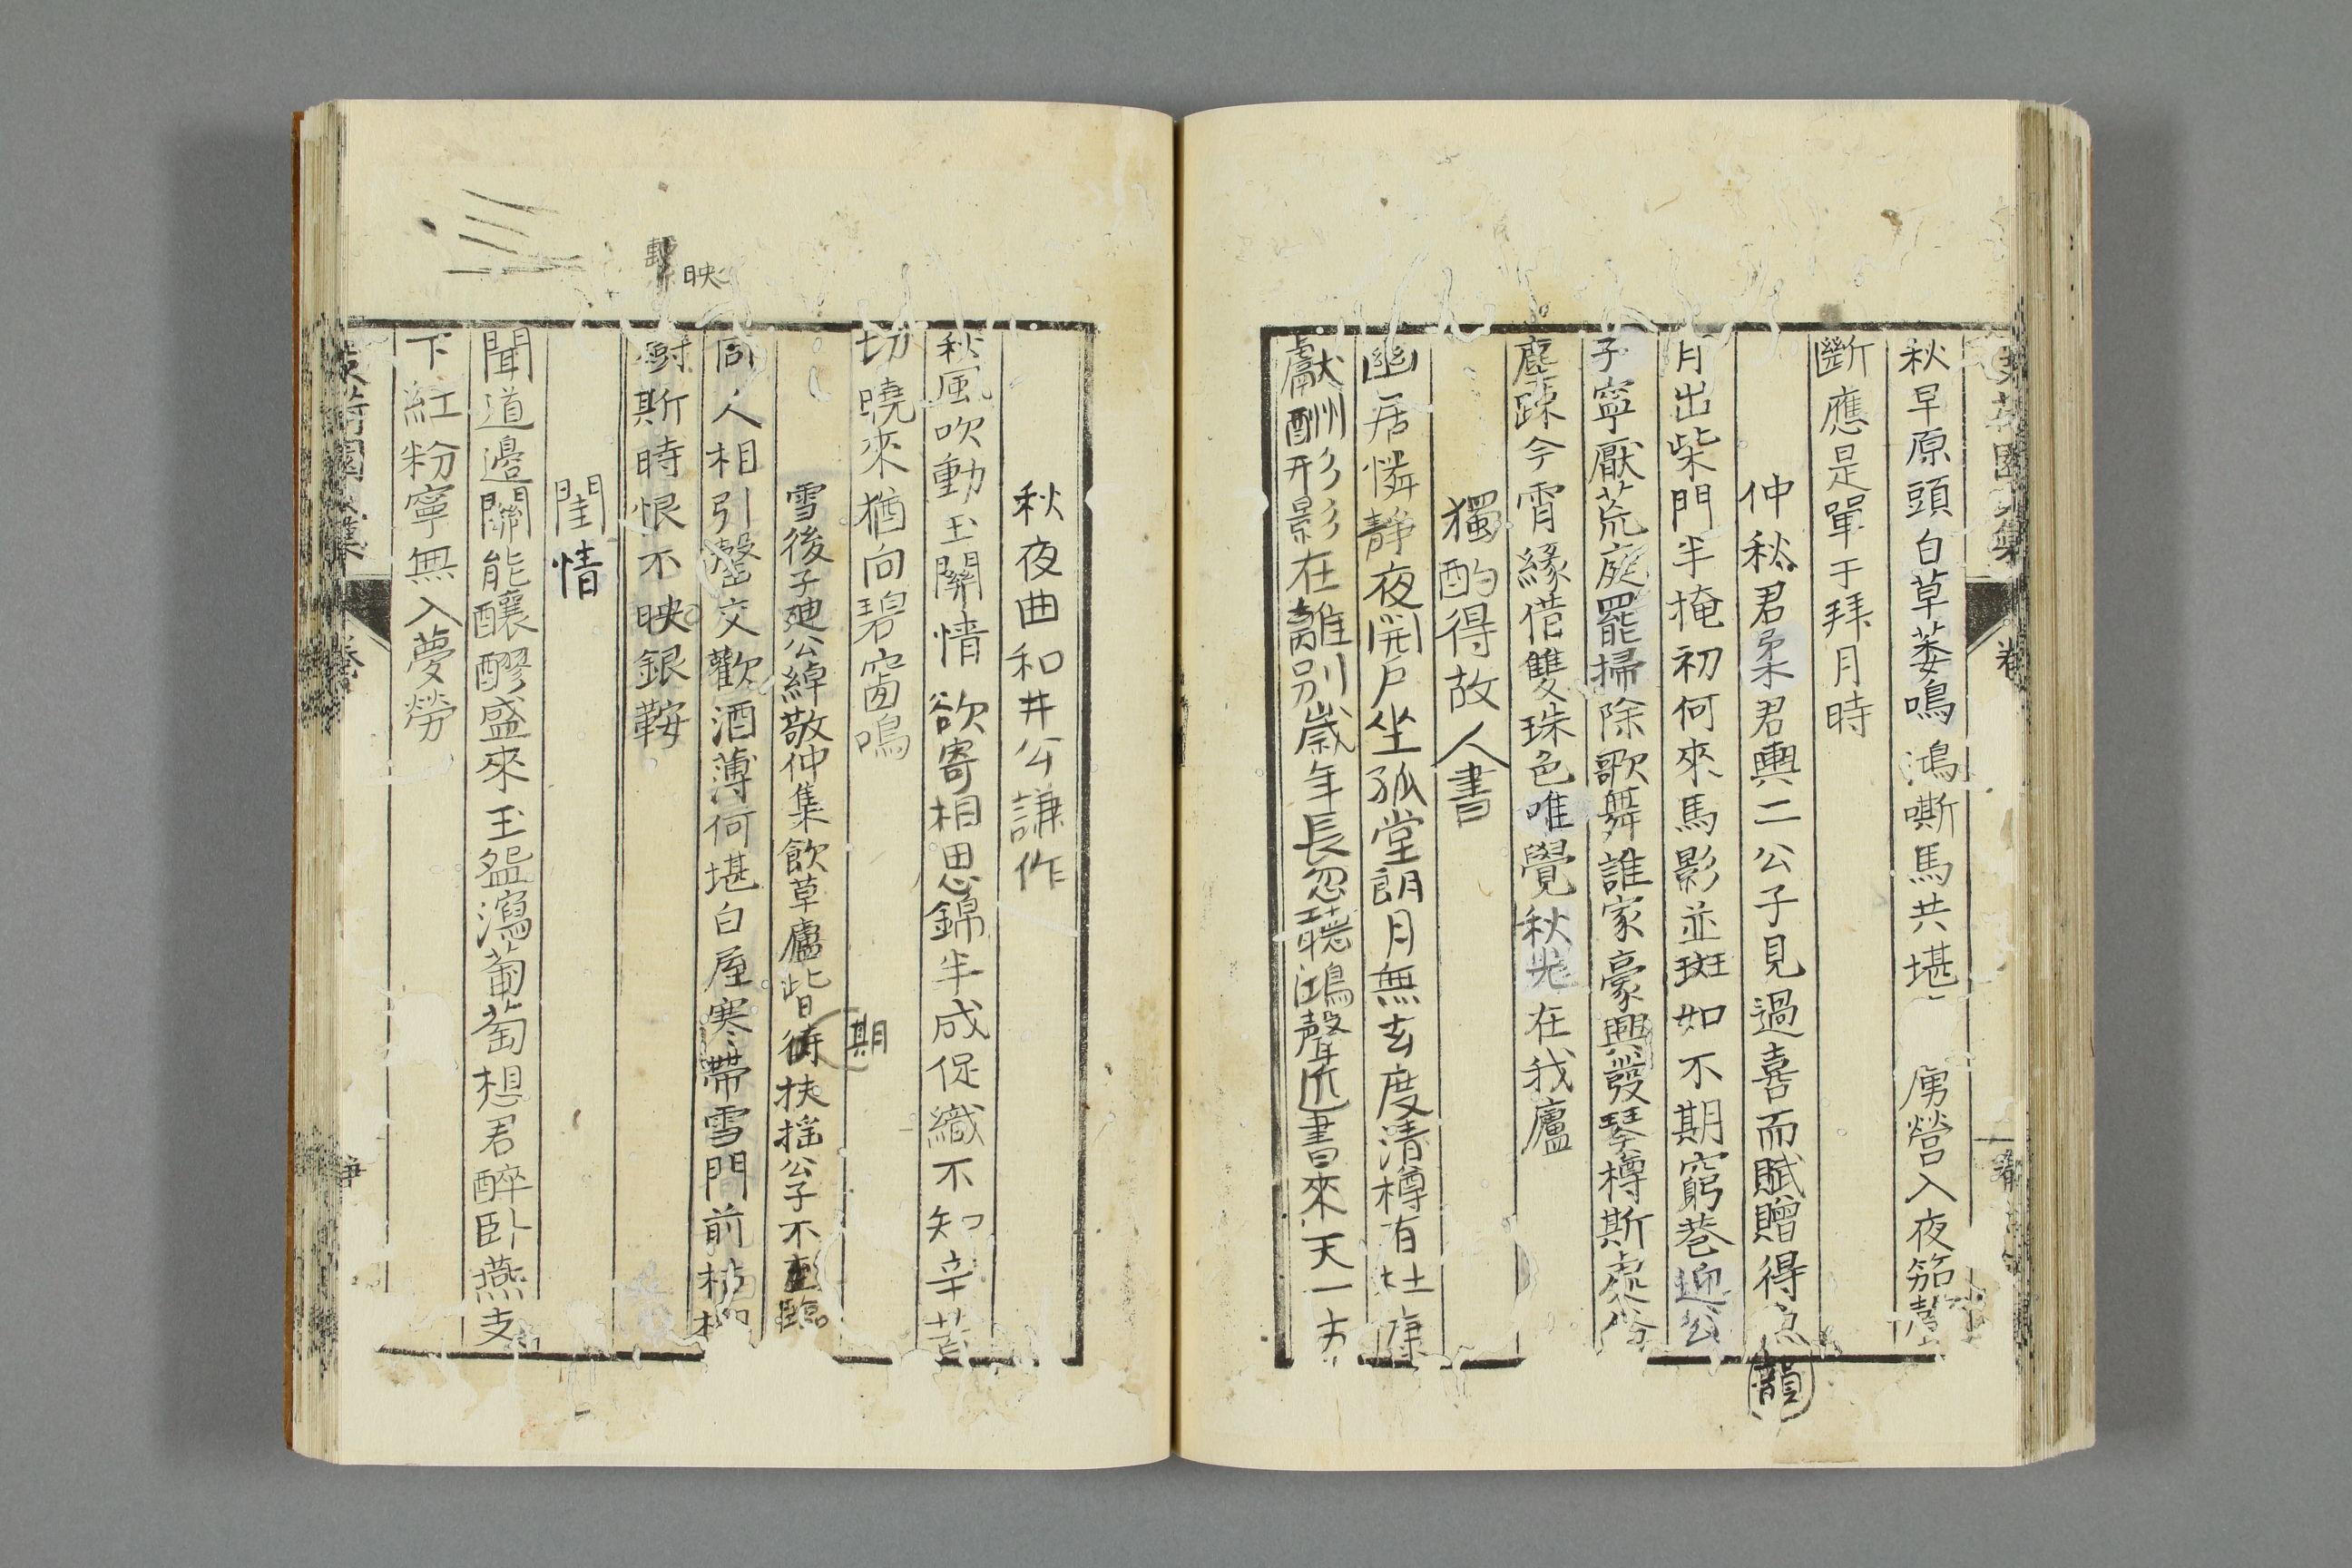 秋早原頭白草萎鳴鴻嘶馬共堪 虜營入夜笳聲
斷應是單于拜月時
仲秋君柔君輿二公子見過喜而賦贈得魚
韻
月出柴門半掩初何來馬影並斑如不期窮巷迎公
子寧厭荒庭罷掃除歌舞誰家豪興發琴樽斯處俗
塵踈今宵緣借雙珠色唯覺秋光在我廬
獨酌得故人書
幽居憐靜夜開戶坐孤堂朗月無玄度清樽有杜康
獻酬形影在離別歲年長忽聽鴻聲近書來天一方
秋夜曲和井公謙作
秋風吹動玉關情欲寄相思錦半成促織不知辛苦
切曉來猶向碧窗鳴
雪後子廸公綽敬仲集飲草廬皆待扶搖公子不臨
期
同人相引罄交歡酒薄何堪白屋寒帶雪門前
斯時恨不映銀鞍
映
閨情
聞道邊關能釀醪盛來玉盌瀉葡萄想君醉臥燕支
下紅粉寧無入夢勞